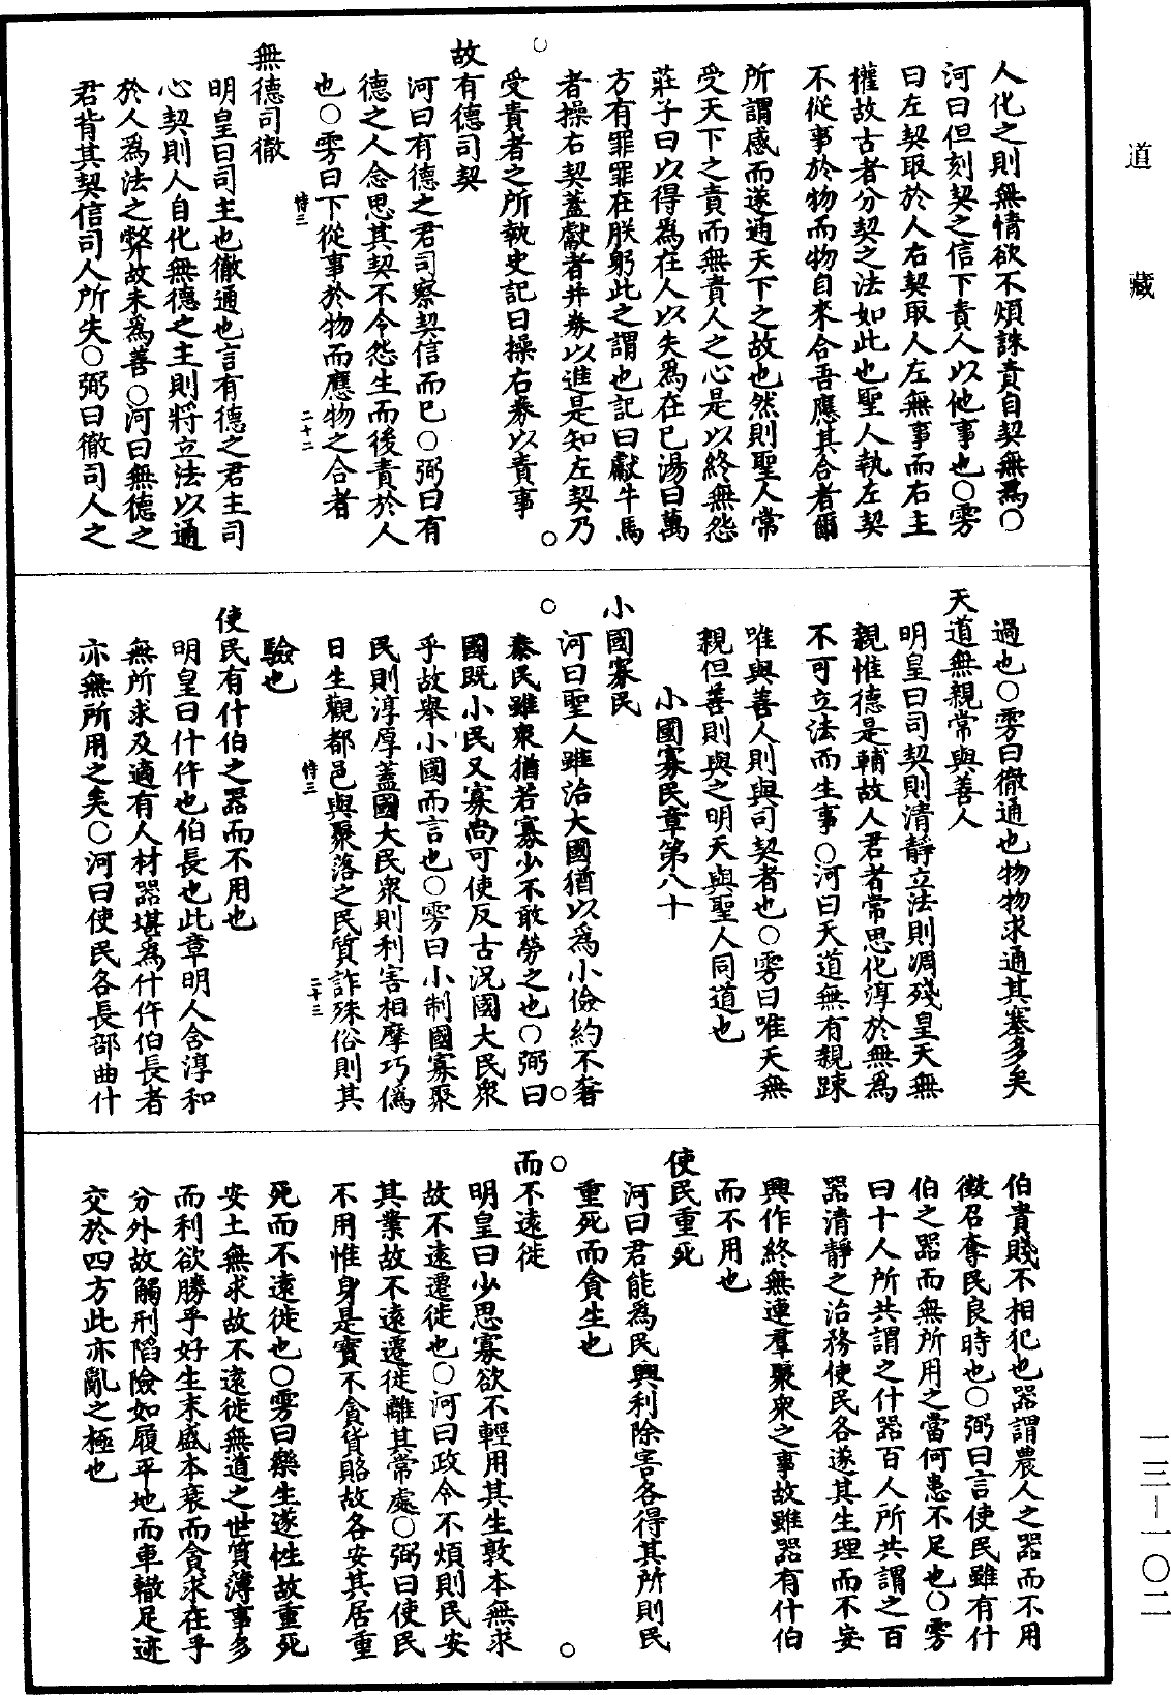 人化之則無情欲不煩誅責自契無爲○
河曰但刻契之信下責人以他事也○雱
曰左契取於人右契取人左無事而右主
權故古者分契之法如此也聖人執左契
不從事於物而物自來合吾應其合者爾
所謂感而遂通天下之故也然則聖人常
受天下之責而無責人之心是以終無怨
莊子曰以得爲在人以失爲在己湯曰萬
方有罪罪在朕躬此之謂也記曰獻牛馬
者操右契蓋獻者并券以進是知左契乃
受責者之所執史記曰操右券以責事
故有德司契
河曰有德之君司察契信而已○弼曰有
德之人念思其契不令怨生而後責於人
也○雱曰下從事於物而應物之合者
恃三
二十二
無德司徹
明皇曰司主也徹通也言有德之君主司
心契則人自化無德之主則將立法以通
於人爲法之弊故未爲善○河曰無德之
君背其契信司人所失○弼曰徹司人之
過也○雱曰徹通也物物求通其塞多矣
天道無親常與善人
明皇曰司契則清靜立法則凋殘皇天無
親惟德是輔故人君者常思化淳於無爲
不可立法而生事○河曰天道無有親踈
唯與善人則與司契者也○雱曰唯天無
親但善則與之明天與聖人同道也
小國寡民章第八十
小國寡民
河曰聖人雖治大國猶以爲小儉約不奢
泰民雖衆猶若寡少不敢勞之也○弼曰
國既小民又寡尚可使反古況國大民衆
乎故舉小國而言也○雱曰小制國寡聚
民則淳厚蓋國大民衆則利害相摩巧僞
日生觀都邑與聚落之民質詐殊俗則其
恃三
二十三
驗也
使民有什伯之器而不用也
明皇曰什仵也伯長也此章明人含淳和
無所求及適有人材器堪爲什仵伯長者
亦無所用之矣○河曰使民各長部曲什
伯貴賤不相犯也器謂農人之器而不用
徵召奪民良時也○弼曰言使民雖有什
伯之器而無所用之當何患不足也○雱
曰十人所共謂之什器百人所共謂之百
器清靜之治務使民各遂其生理而不妄
興作終無連羣聚衆之事故雖器有什伯
而不用也
使民重死
河曰君能爲民興利除害各得其所則民
重死而貪生也
而不遠徙
明皇曰少思寡欲不輕用其生敦本無求
故不遠遷徙也○河曰政令不煩則民安
其業故不遠遷徙離其常處○弼曰使民
不用惟身是寶不貪貨賂故各安其居重
死而不遠徙也○雱曰樂生遂性故重死
安土無求故不遠徙無道之世質薄事多
而利欲勝乎好生末盛本衰而貪求在乎
分外故觸刑陷險如履平地而車轍足迹
交於四方此亦亂之極也
道
藏
一三－一〇二